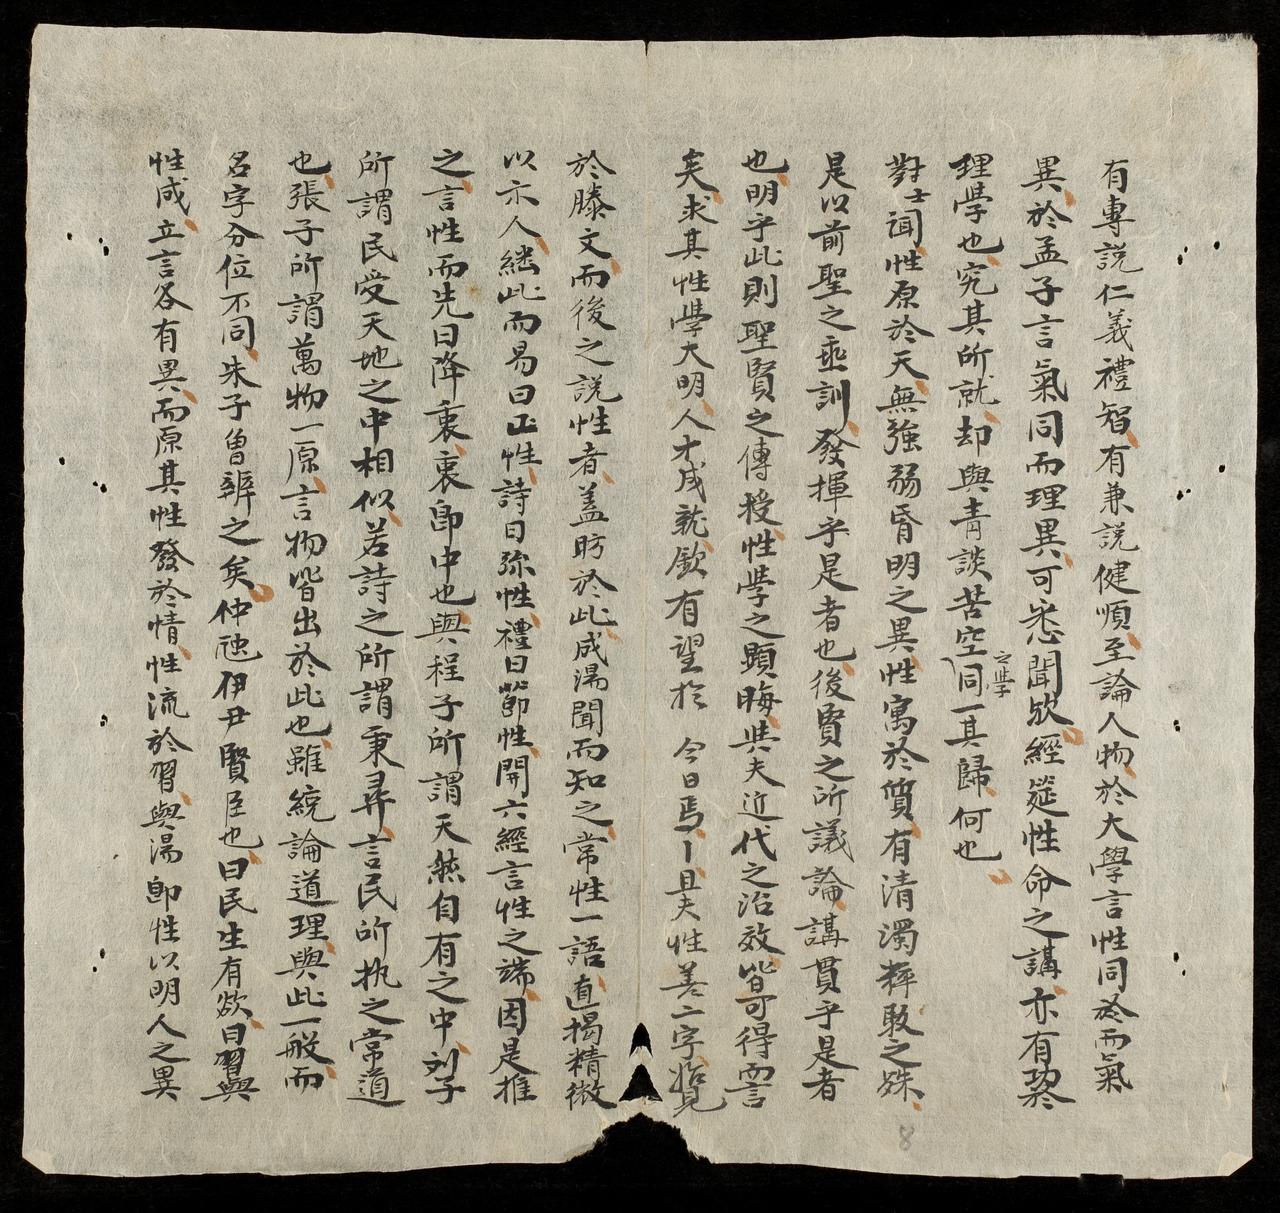 有專說仁義禮智有兼說健順至論人物於大學言性同於而氣
異於孟子言氣同而理異可悉聞歟經筵性命之講亦有裨
理學也究其所就却與青談苦空之學同一其歸何也
對士聞性原於天無強弱昏明之異性寓於質有清濁粹駁之殊
是以前聖之垂訓發揮乎是者也後賢之所議論講貫乎是者
也明乎此則聖賢之傳授性學之顯晦與夫近代之治效皆可得而言
矣求其性學大明人才成就歟有望於今日焉且夫性善二字始見
於滕文而後之說性者蓋昉於此成湯聞而知之常性一語直揭精微
以示人繼此而易曰正性詩曰弥性禮曰節性開六經言性之端因是推
之言性而先曰降衷衷即中也與程子所謂天然自有之中刘子
所謂民受天地之中相似若詩之所謂秉彝言民所执之常道
也張子所謂萬物一原言物皆出於此也雖統論道理與此一般而
名字分位不同朱子曾辨之矣仲虺伊尹賢臣也曰民生有欲曰習與
性成立言各有異而原其性發於情性流於習與湯即性以明人之異
8